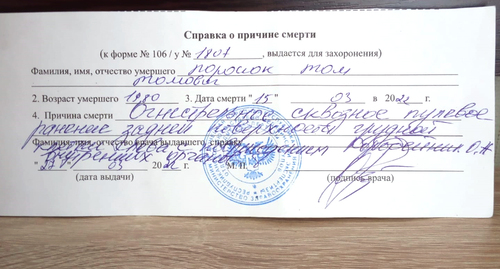 Справка о причине смерти
(к форме № 106 / у № 1807, выдается для захоронения)
Фамилия, имя, отчество умершего поросюк том
томович
2. Возраст умершего 1980 3. Дата смерти "15" 03 в 2022 г.
4. Причина смерти Огнестрельное сквозное пулевое
ранение задней поверхности грудной
Фамилия, имя, отчество врача выдавшего справку
с повреждением
внутренних органов
03 2022 г. М.П.
(дата выдачи) (подпись врача)